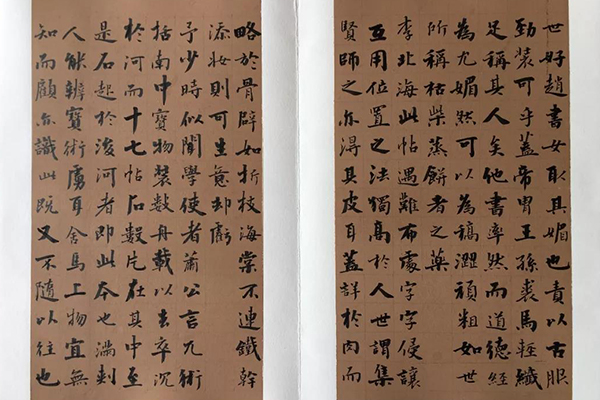 世好趙書女取其媚也責以古服
勁装可乎蓋帝胄王孫裘馬輕纖
足稱其人矣他書率然而道德經
為尤媚然可以為槁澀頑粗如世
所稱枯柴蒸餅者之藥
李北海此帖遇難布處字字侵讓
互用位置之法獨高於人世謂集
賢師之亦得其皮耳蓋詳於肉而
略於骨辟如折枝海棠不連鐵幹
添妝則可生意却虧
予少時似聞學使者蕭公言兀術
括南中寶物裝數舟載以去卒沉
於河而十七帖石數片在其中至
是石起於浚河者即此本也滿剌
人能辨寶術虜耳舍馬上物宜無
知而顧亦識此既又不隨以往也